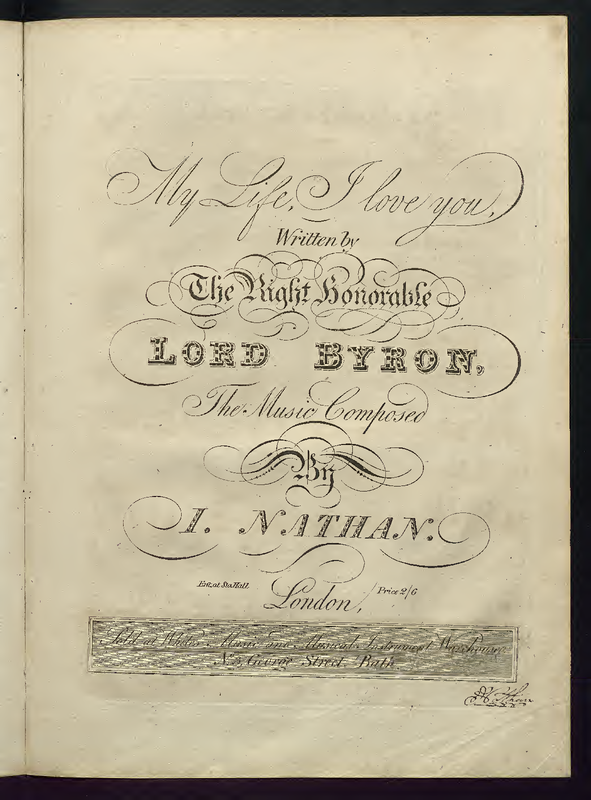 My Life, I love you,
Written by
The Right Honorable
LORD BYRON,
The Music Composed
By
I. NATHAN.
Ent. at Sta. Hall.
London,
Price 2/6
Sold at Music and Musical Instrument Warehouse
No. 5, George Street, Bath